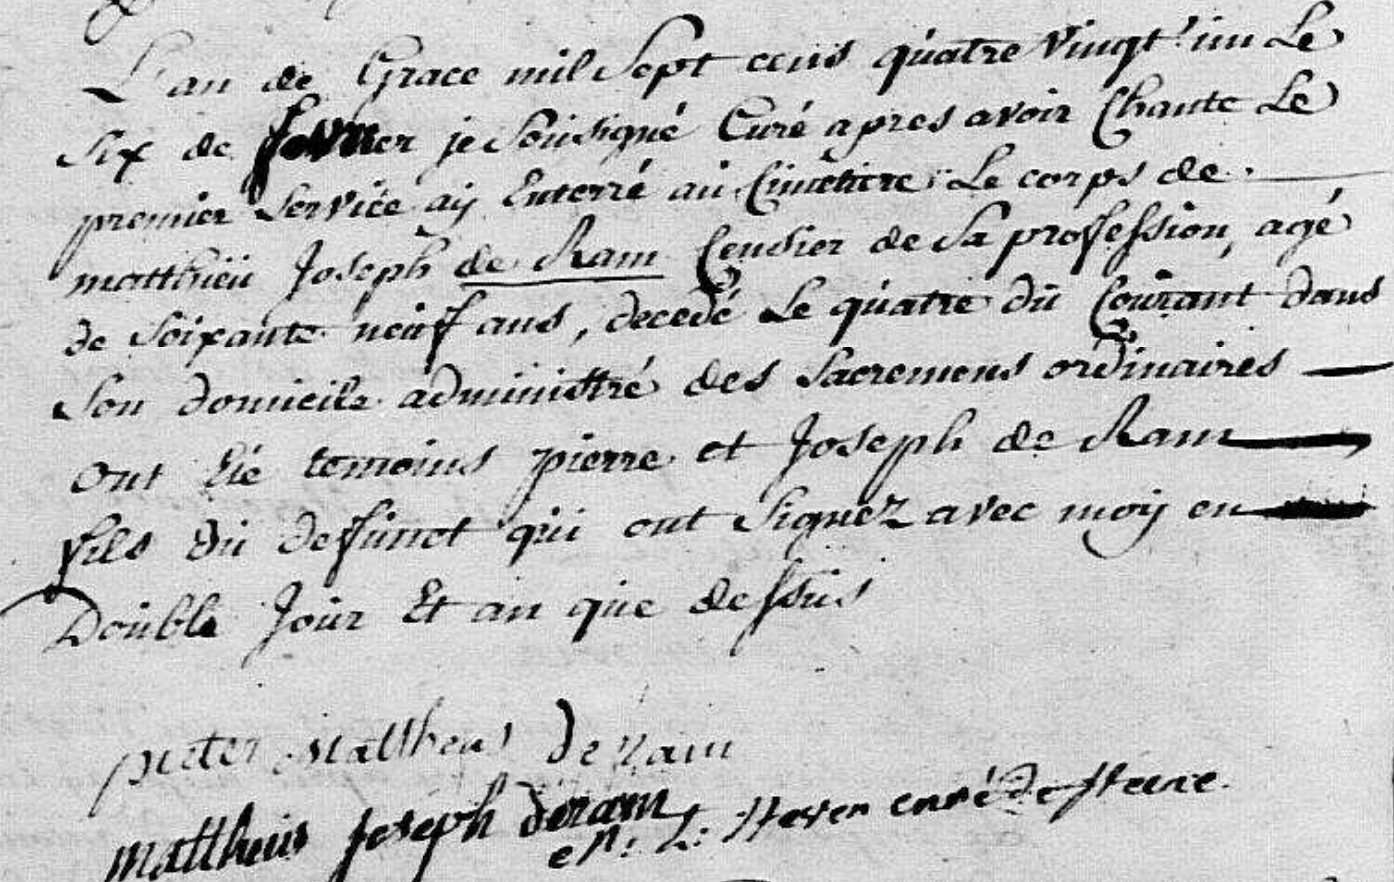 L'an de Grace mil Sept cens quatre Vingt un Le
Six de fevrier je Sousigné Curé apres avoir Chanté Le
premier Service aÿ Enterré au Cimetiere Le corps de
matthieu Joseph de Ram Censier de Sa profession, agé
de Soixante neuf ans, decedé Le quatre du Courant dans
Son domicile administré des Sacremens ordinaires
ont Eté temoins pierre et Joseph de Ram
fils du defunct qui ont Signez avec moÿ en
Double Jour Et an que dessus
pieter Mattheus De ram
Mattheus Joseph deram
L: curé de